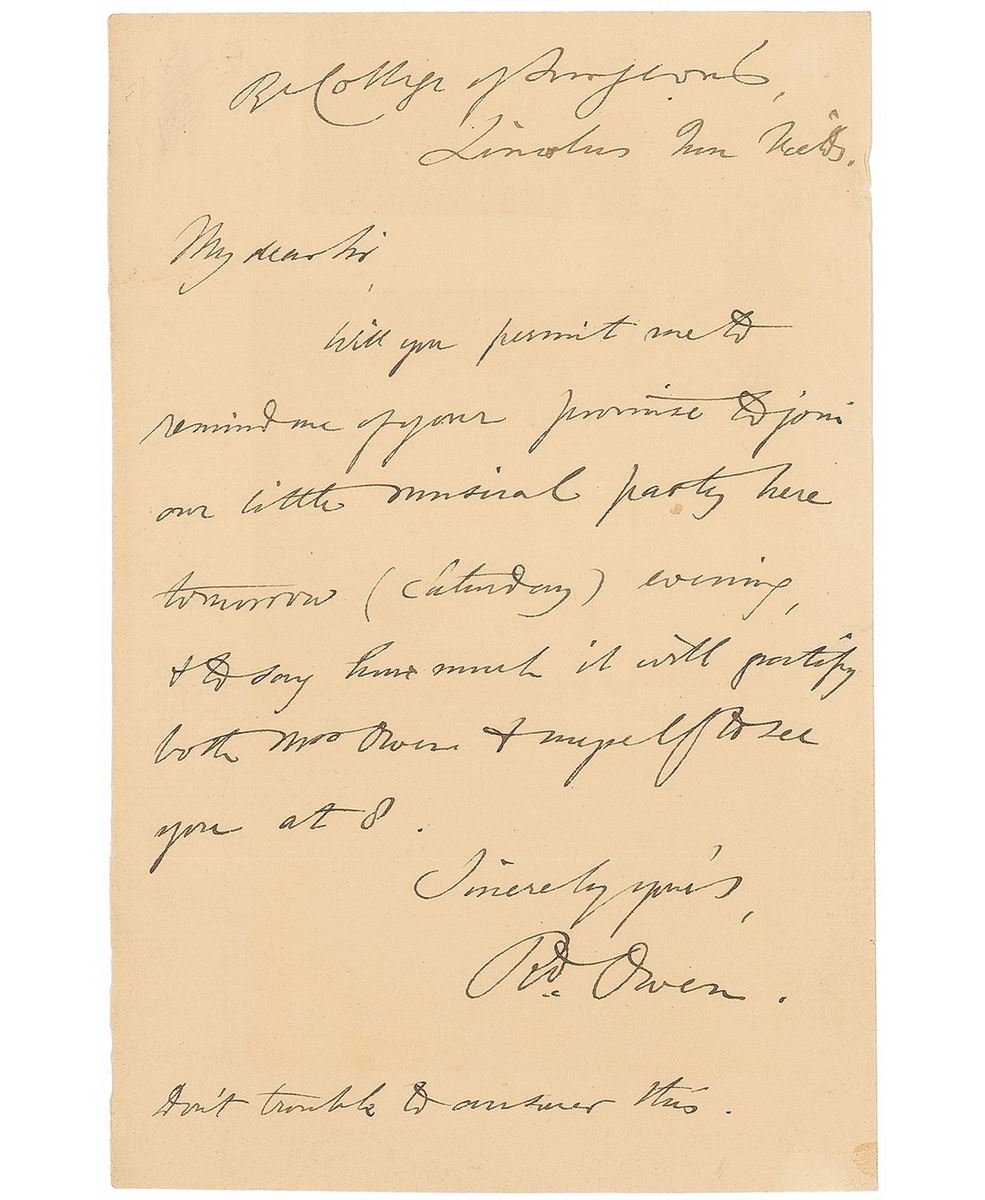 Rl College of Surgeons,
Lincolns Inn Fields.
My dear Sir,
Will you permit me to
remind me of your promise to join
our little musical party here
tomorrow (Saturday) evening,
& to say how much it will gratify
both Mrs Owen & myself to see
you at 8.
Sincerely yours,
Rd. Owen.
Don't trouble to answer this.